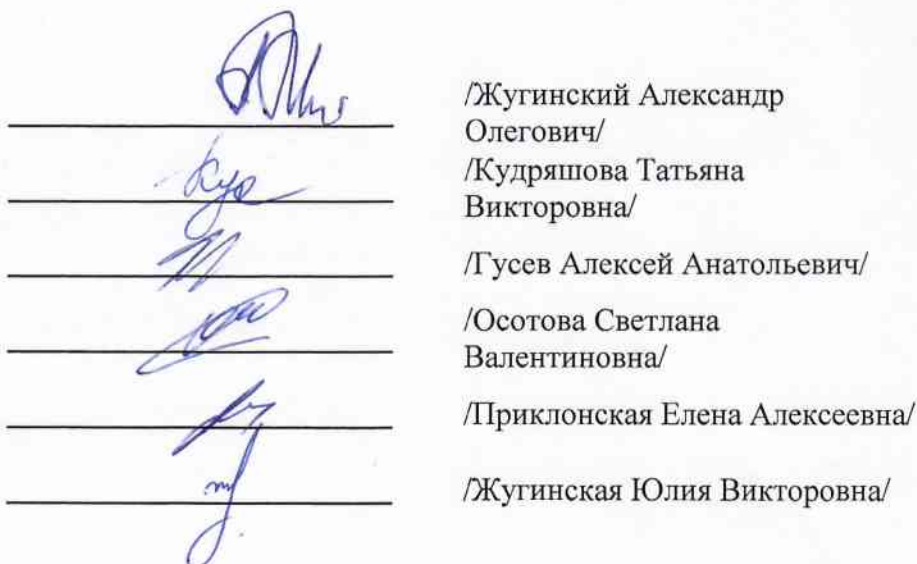 /Жугинский Александр
Олегович/
Куд
/Кудряшова Татьяна
Викторовна/
/Гусев Алексей Анатольевич/
/Осотова Светлана
Валентиновна/
/Приклонская Елена Алексеевна/
/Жугинская Юлия Викторовна/